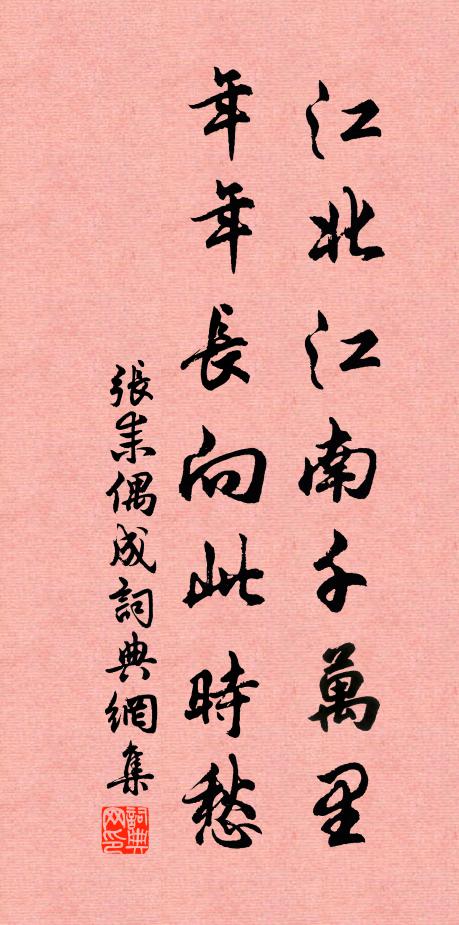 江北江南千萬里
年年長向此時愁
張耒偶成詞典網集
詞典
网印